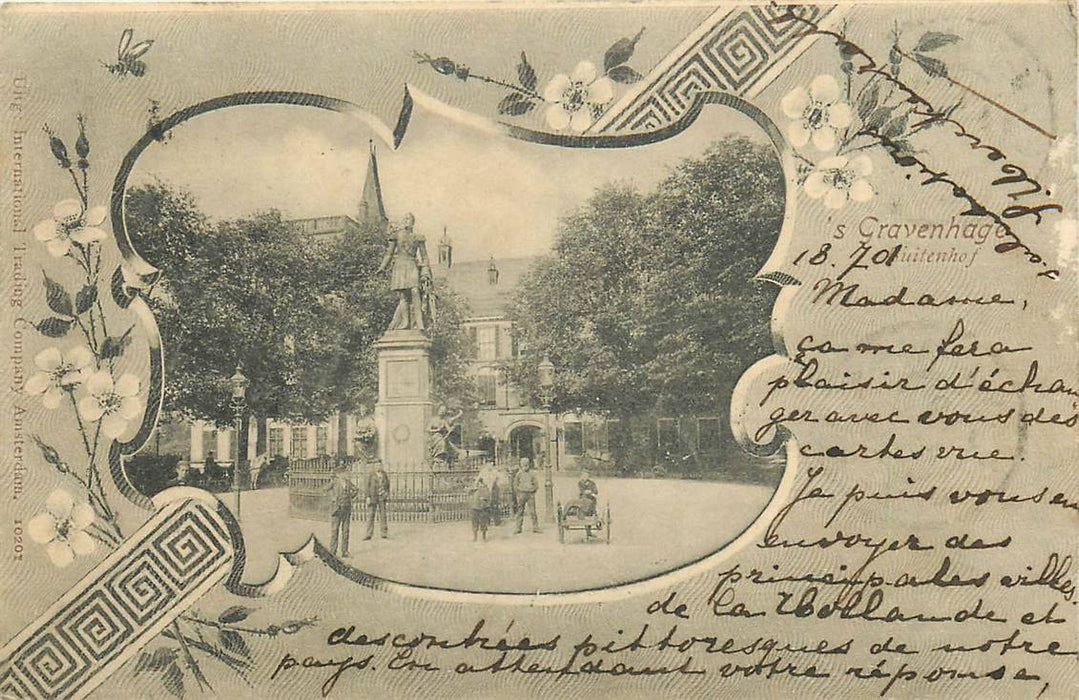 's Gravenhage
Buitenhof
18.701
Madame,
ça me fera
plaisir d'échan
ger avec vous des
cartes vue.
Je puis vous en
envoyer des
principales villes
de la Hollande et
des contrées pittoresques de notre
pays. En attendant votre réponse,
Uitg: International Trading Company Amsterdam. 10201